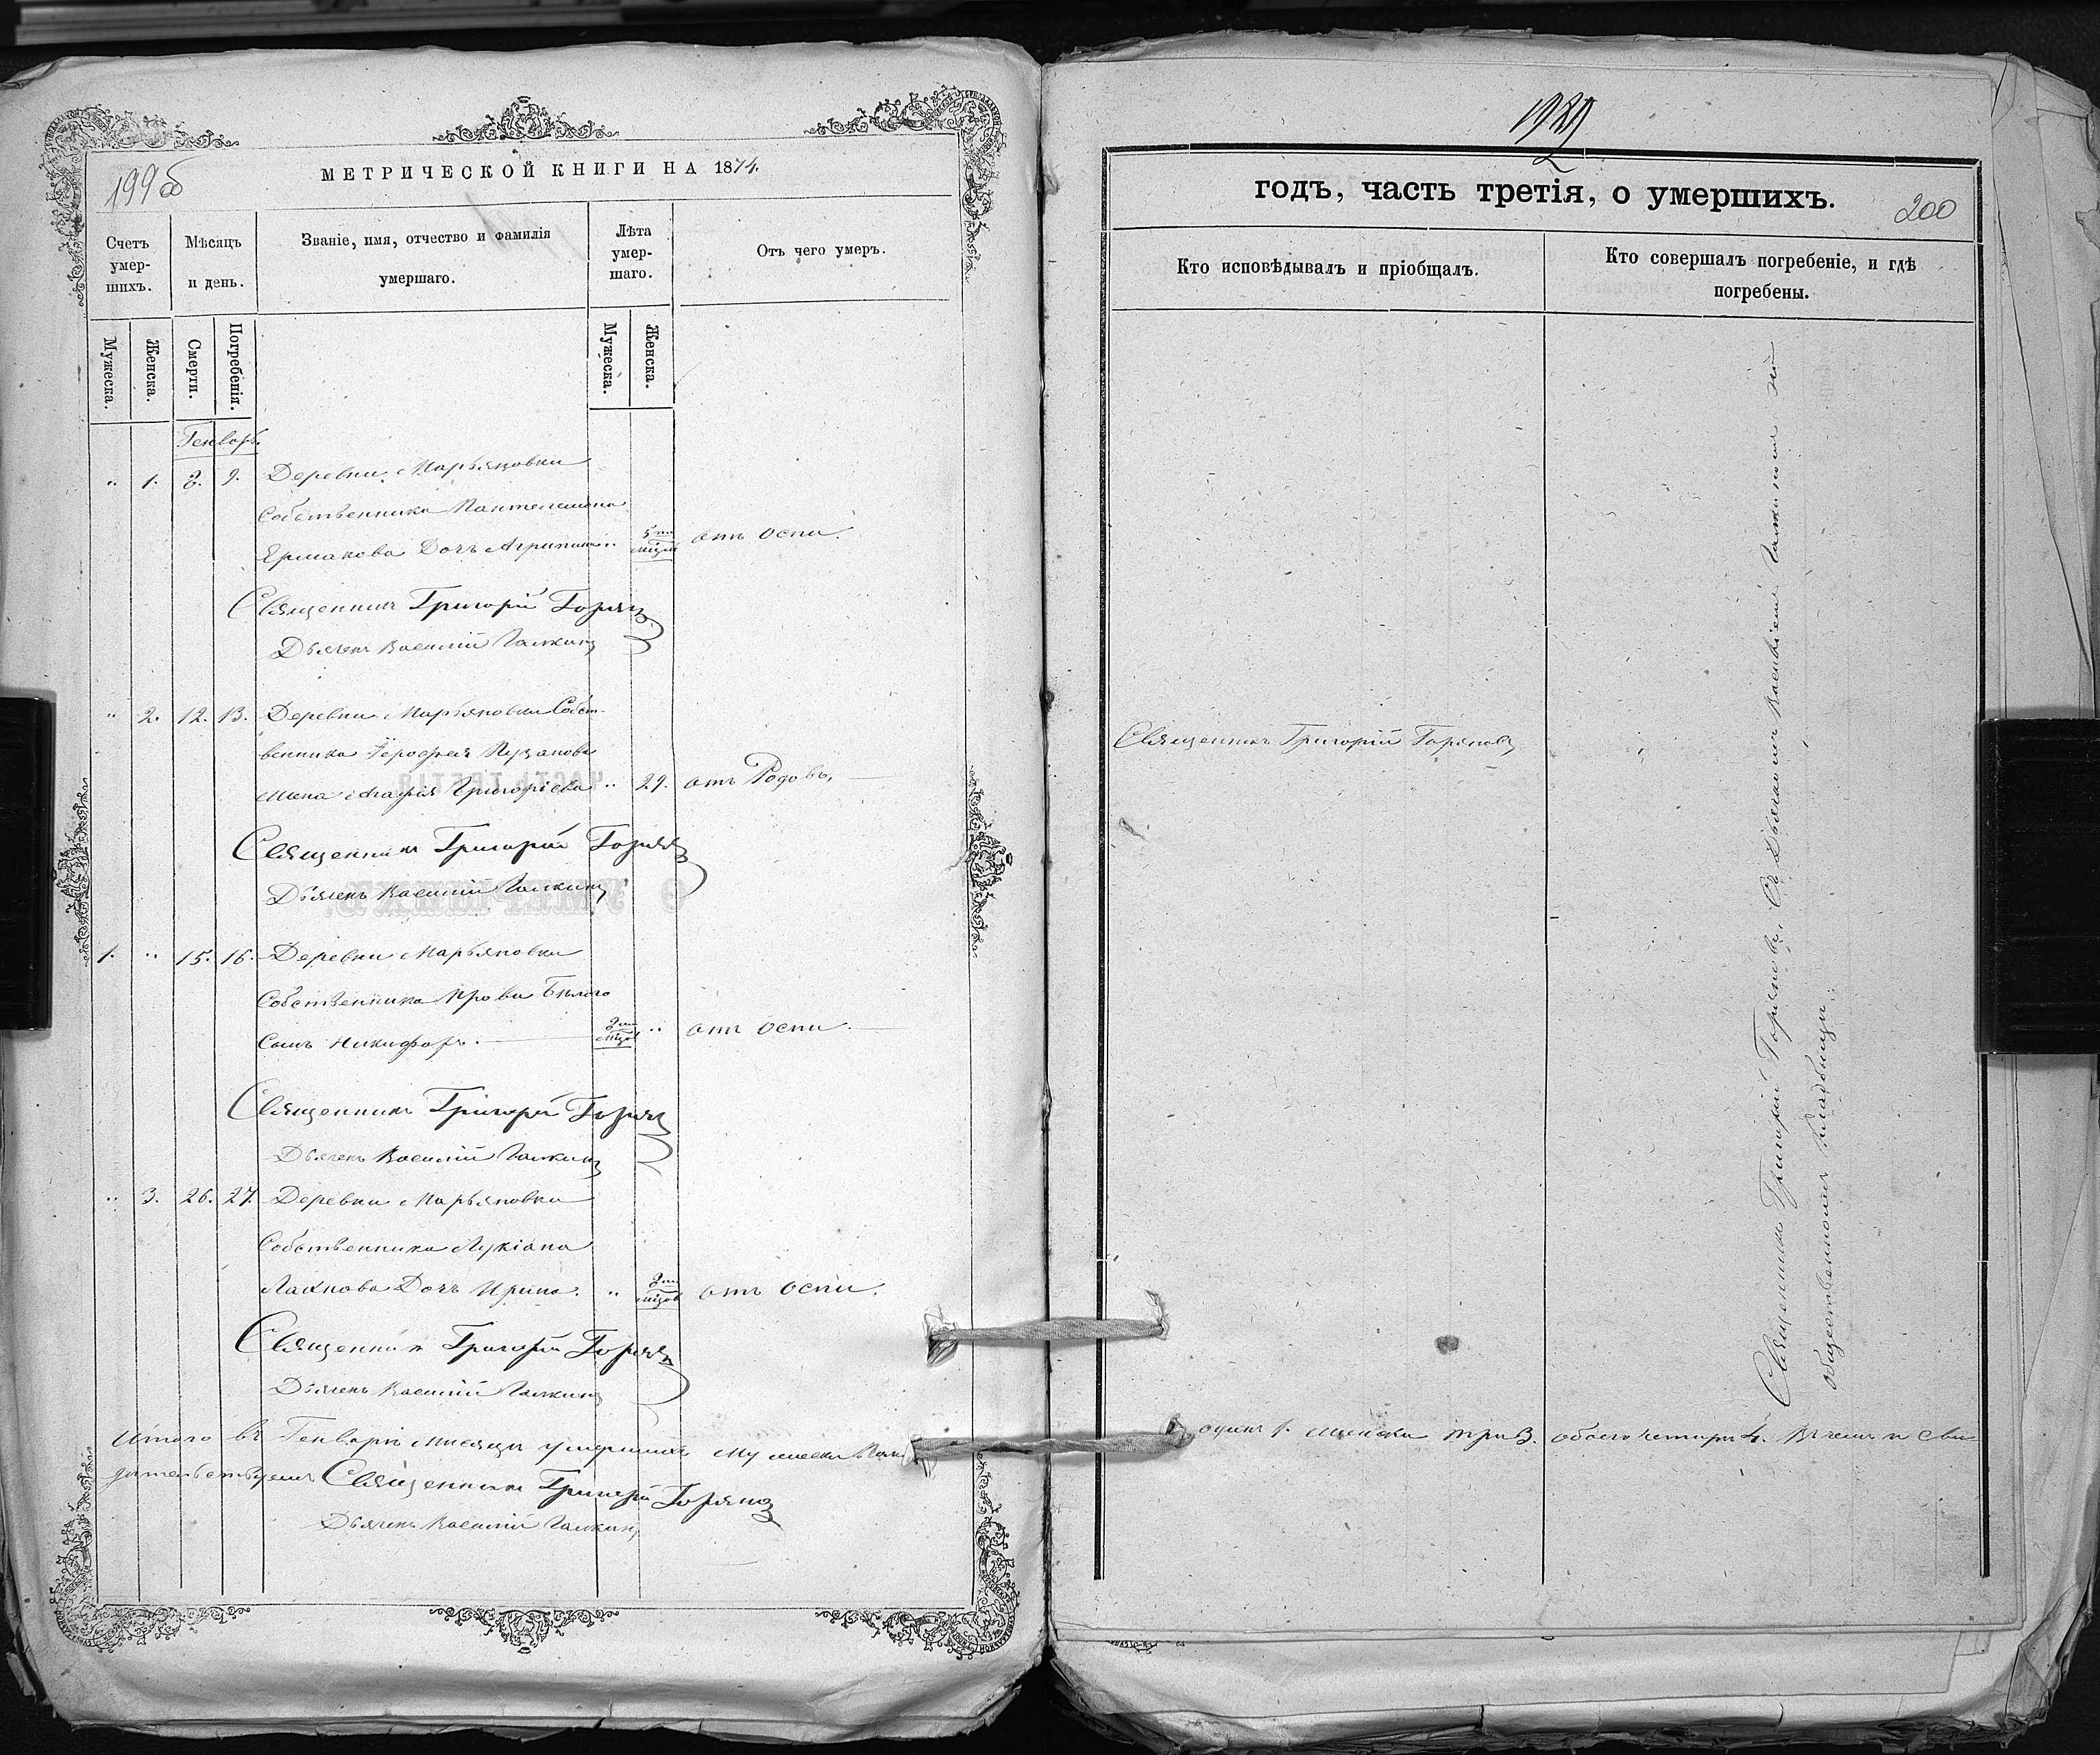 199об
МЕТРИЧЕСКОЙ КНИГИ НА 1874.
Счетъ умер-шихъ.
Мѣсяцъ и день.
Званіе, имя, отчество и фамилія умершаго.
Лѣта умер-шаго.
Отъ чего умеръ.
Мужеска.
Женска.
Смерти.
Погребенія.
Мужеска.
Женска.
Генварь.
" 1. 8. 9. Деревни Марьяновки
Собственника Пантелеимона
Ермакова Дочь Агрипина " 5 ти отъ оспи.
Священникъ Григорій
Дьячекъ Василій Галкинъ
" 2. 12. 13. Деревни Марьяновки Собст-
венника Ерофея
жена Агафія Григоріева " 29. отъ Родовъ.
Священникъ Григорій
Дьячекъ Василій Галкинъ
1. " 15. 16. Деревни Марьяновки
Собственника Прова Бѣлого
Сынъ Никифоръ. " отъ оспи.
Священникъ Григорій
Дьячекъ Василій Галкинъ
" 3. 26. 27. Деревни Марьяновки
Собственника Лукіана
Дочь Ирина. " отъ оспи.
Священникъ Григорій
Дьячекъ Василій Галкинъ
Итого въ Генварѣ мисяцѣ умершихъ мужеска Пола
дительствуемъ Священникъ Григорій Горяновъ
Дьячекъ Василій Галкинъ
200
годъ, часть третія, о умершихъ.
Кто исповѣдывалъ и пріобщалъ.
Кто совершалъ погребеніе, и гдѣ погребены.
Священникъ Григорій Горяновъ
Священникъ Григорій Горяновъ, Съ Дьячкомъ Василіемъ Галкинымъ на
общественномъ кладбищи.
одинъ 1. женска три 3. обоего четыри 4. Въ чемъ и сви